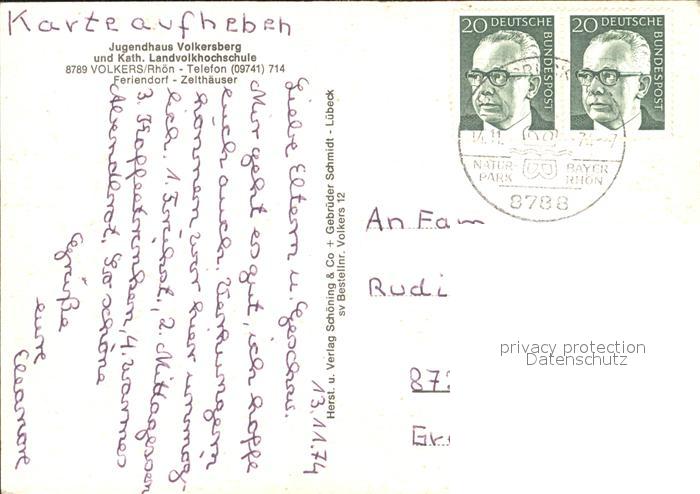 Karte aufheben
Jugendhaus Volkersberg
und Kath. Landvolkhochschule
8789 VOLKERS/Rhön - Telefon (09741) 714
Feriendorf - Zelthäuser
13.11.74
Liebe Eltern u. Geschw.
Mir geht es gut, ich hoffe
euch auch. Verhungern
können wir hier unmög-
lich. 1. Frühst., 2. Mittagessen
3. Kaffeetrinken, 4. warmes
Abendbrot. So schöne
Grüße
eure
Eleonore
Herst. u. Verlag Schöning & Co + Gebrüder Schmidt - Lübeck
sv Bestellnr. Volkers 12
20 DEUTSCHE BUNDESPOST
20 DEUTSCHE BUNDESPOST
14.11.
74-7
NATUR-
PARK
BAYER
RHÖN
8788
An Fam
Rudi
87
Gr
privacy protection
Datenschutz